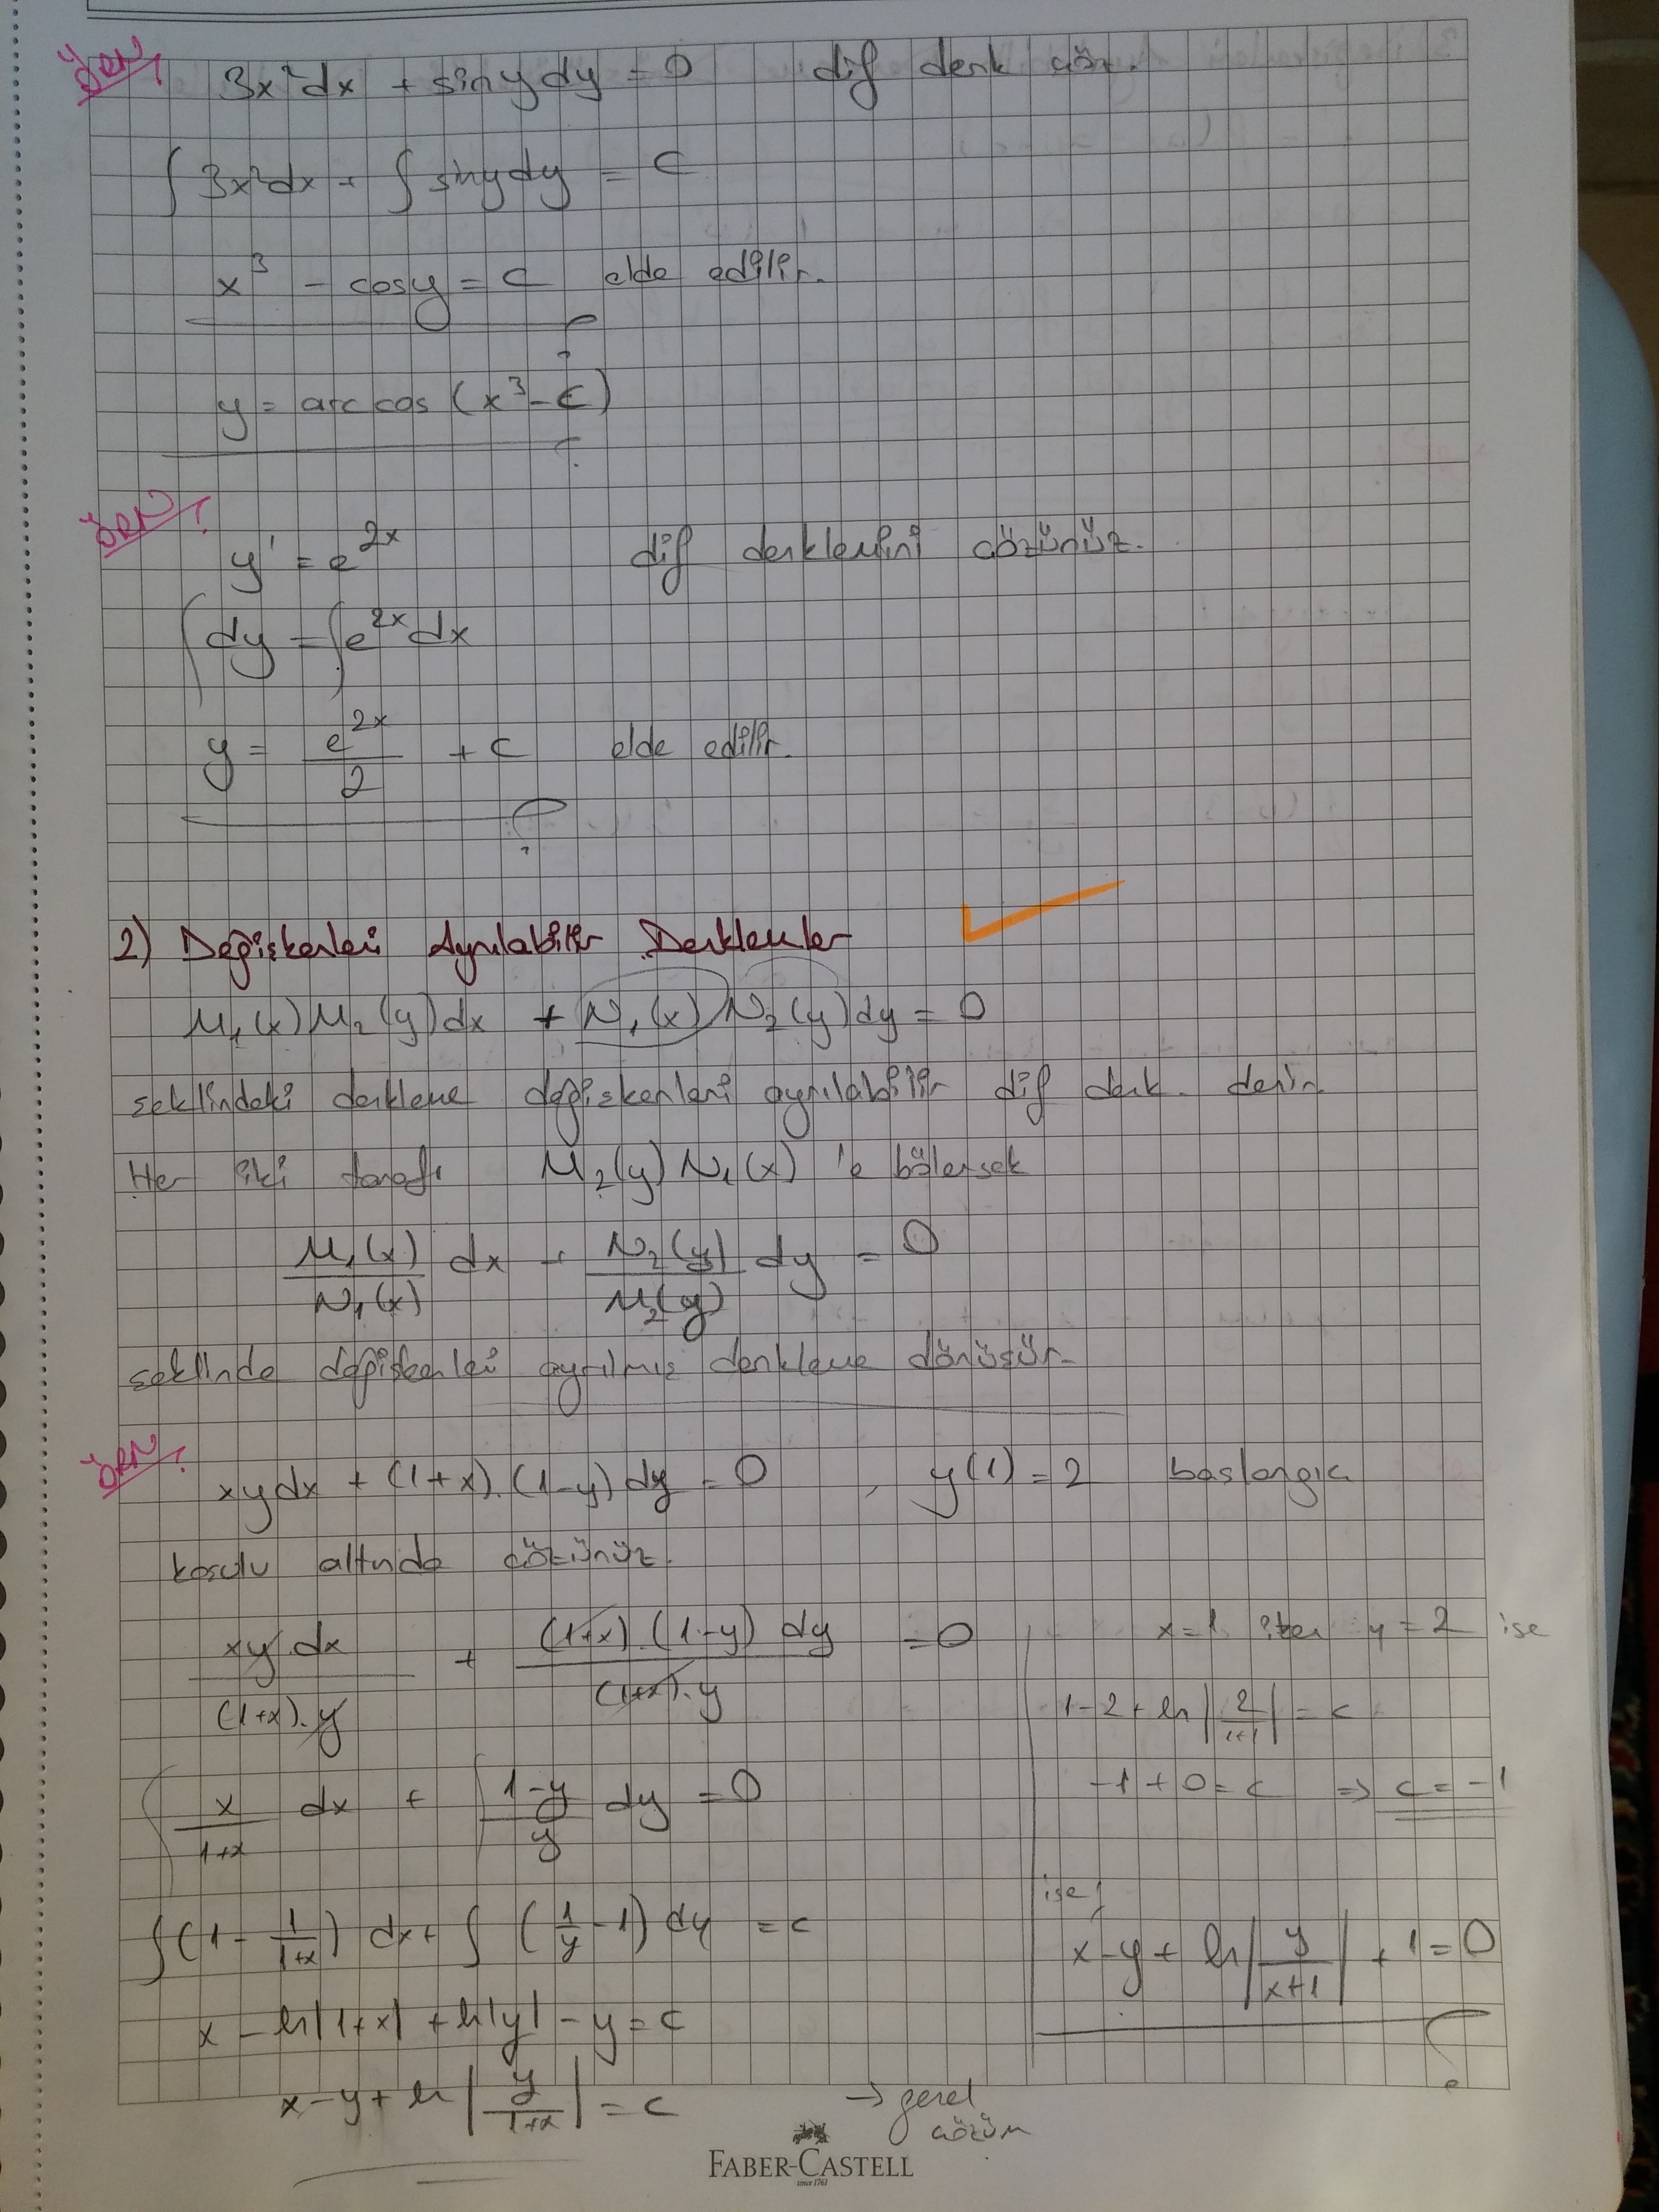 Örn/
3x²dx + siny dy = 0 dif denk çöz.
∫3x²dx + ∫siny dy = c
x³ - cosy = c elde edilir.
y = arc cos (x³ - c)
ÖRN/
y' = e^2x dif denklemini çözünüz.
∫dy = ∫e^2x dx
y = e^2x/2 + c elde edilir.
2) Değişkenleri Ayrılabilir Denklemler
M₁(x) M₂(y) dx + N₁(x) N₂(y) dy = 0
şeklindeki denkleme değişkenleri ayrılabilir dif denk. denir.
Her iki tarafı M₂(y) N₁(x) 'e bölersek
M₁(x)/N₁(x) dx + N₂(y)/M₂(y) dy = 0
şeklinde değişkenleri ayrılmış denkleme dönüşür.
ÖRN/
xy dx + (1+x).(1-y) dy = 0 , y(1) = 2 başlangıç
koşulu altında çözünüz.
xy dx/(1+x).y + (1+x).(1-y) dy/(1+x).y = 0
∫x/1+x dx + ∫1-y/y dy = 0
∫(1 - 1/1+x) dx + ∫(1/y - 1) dy = c
x - ln|1+x| + ln|y| - y = c
x - y + ln|y/1+x| = c → genel çözüm
x = 1 iken y = 2 ise
1-2 + ln|2/1+1| = c
-1 + 0 = c ⇒ c = -1
ise;
x - y + ln|y/x+1| + 1 = 0
FABER-CASTELL
since 1761